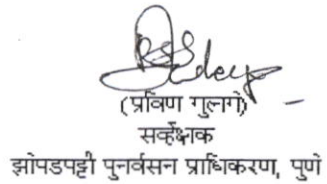 (प्रविण गुलगे)
सर्व्हेक्षक
झोपडपट्टी पुनर्वसन प्राधिकरण, पुणे